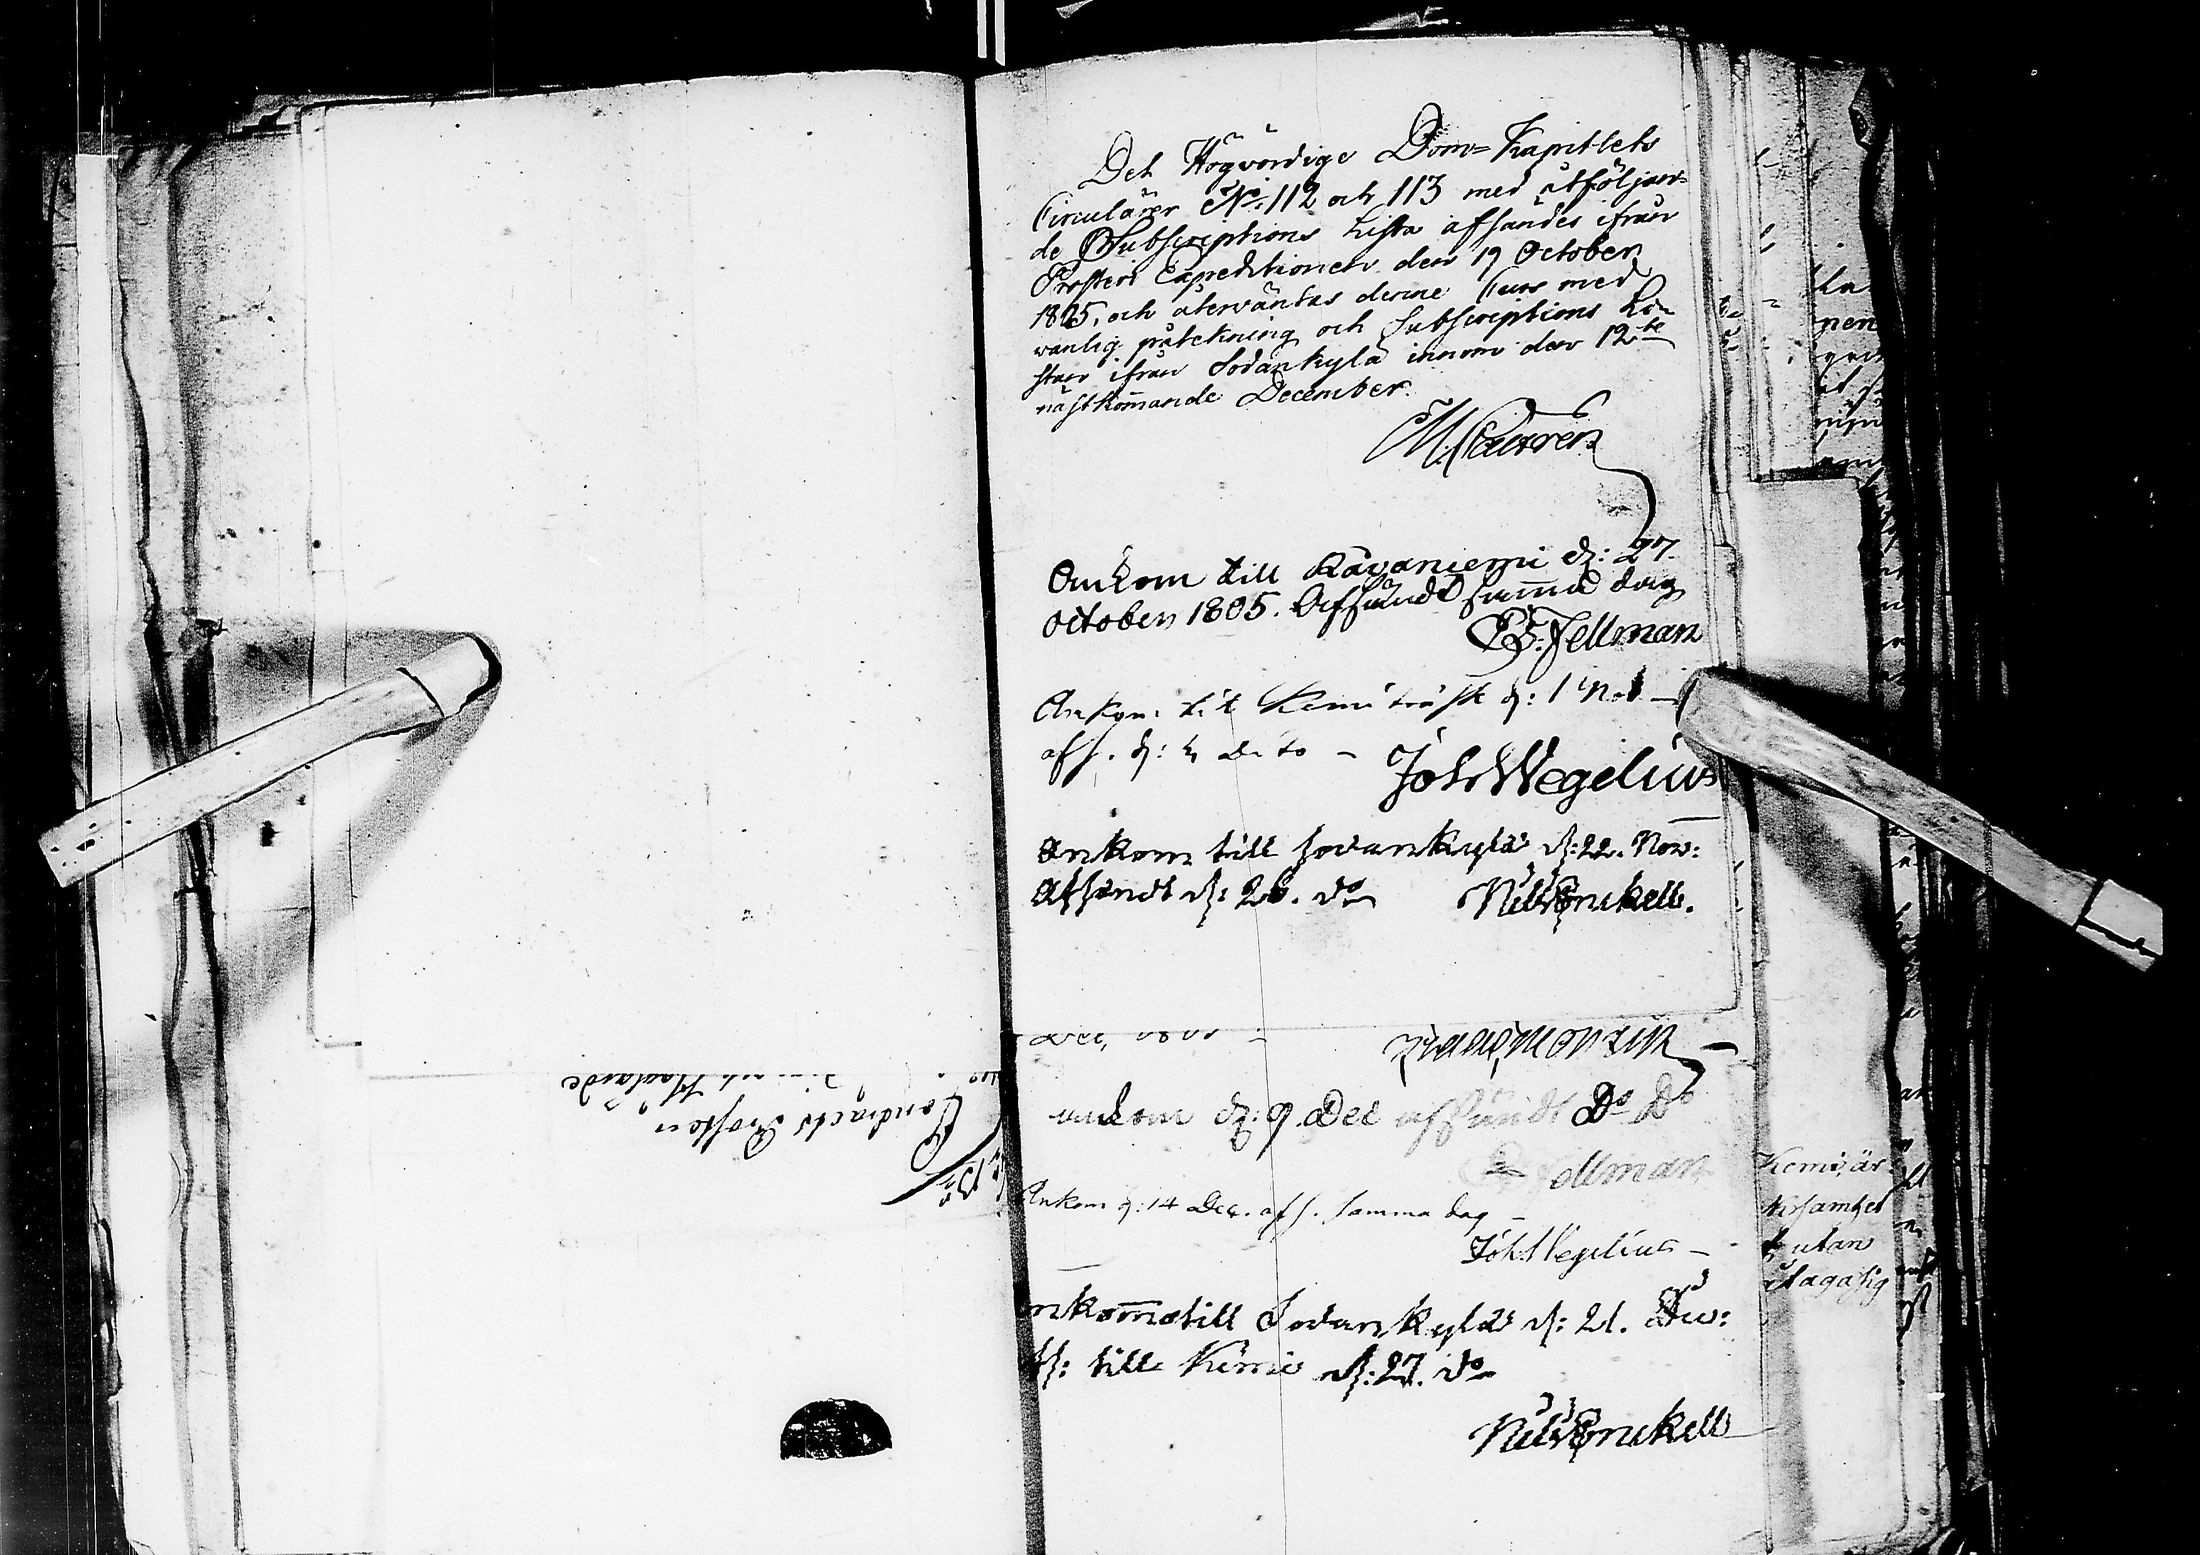 Det Högvördige Dom=Kapitlets
Circulärer No: 112 och 113 med åtföljan-
de Subscriptions Lista afsändes ifrån
Prosteri Expeditionen den 19 October
1805, och återväntas denne Curs med
vanlig påtekning och Subscriptions Li-
stan ifrån Sodankylä innom den 12te
nästkom̄ande December.
M. Castren
Ankom till Råvaniemi d: 27
October 1805. Affändt sam̄a dag
E. Fellman
Ankom til Kemiträsk d: 1 Nov
afs. d: 2 Dito —
Joh Wegelius
Ankom till Sodankylä d: 22. Nov:
Afsändt d: 26. do
Nils Enckell.
Dec, 1805
ankom d: 9 Dec afsändt Do Do
Fellman
Ankom d: 14 Dec. afs. samma dag —
Joh. Wegelius —
nkom̄o till Sodankylä d: 21. Dec:
fs: till Kemi d: 27. do
Nils Enckell
Contracts Prosten
Kemi är
utan